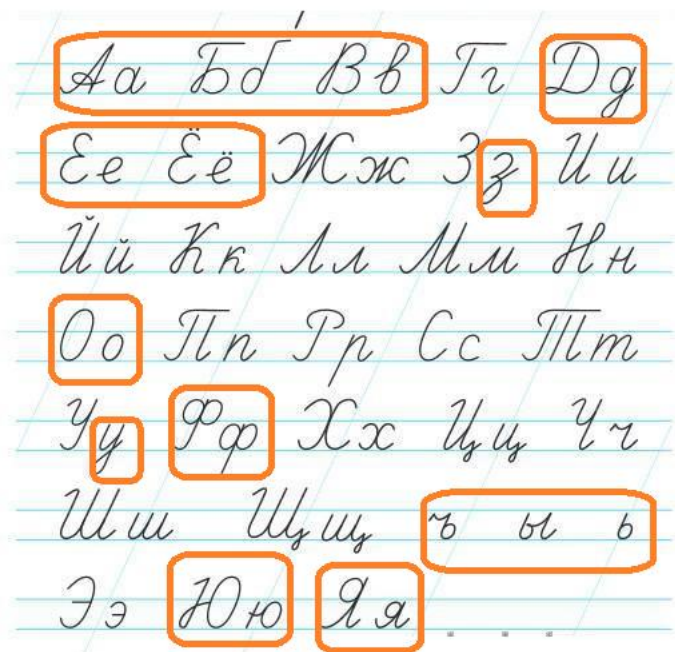 Аа Бб Вв Гг Дд
Ее Ёё Жж Зз Ии
Йй Кк Лл Мм Нн
Оо Пп Рр Сс Тт
Уу Фф Хх Цц Чч
Шш Щщ ъ ы ь
Ээ Юю Яя